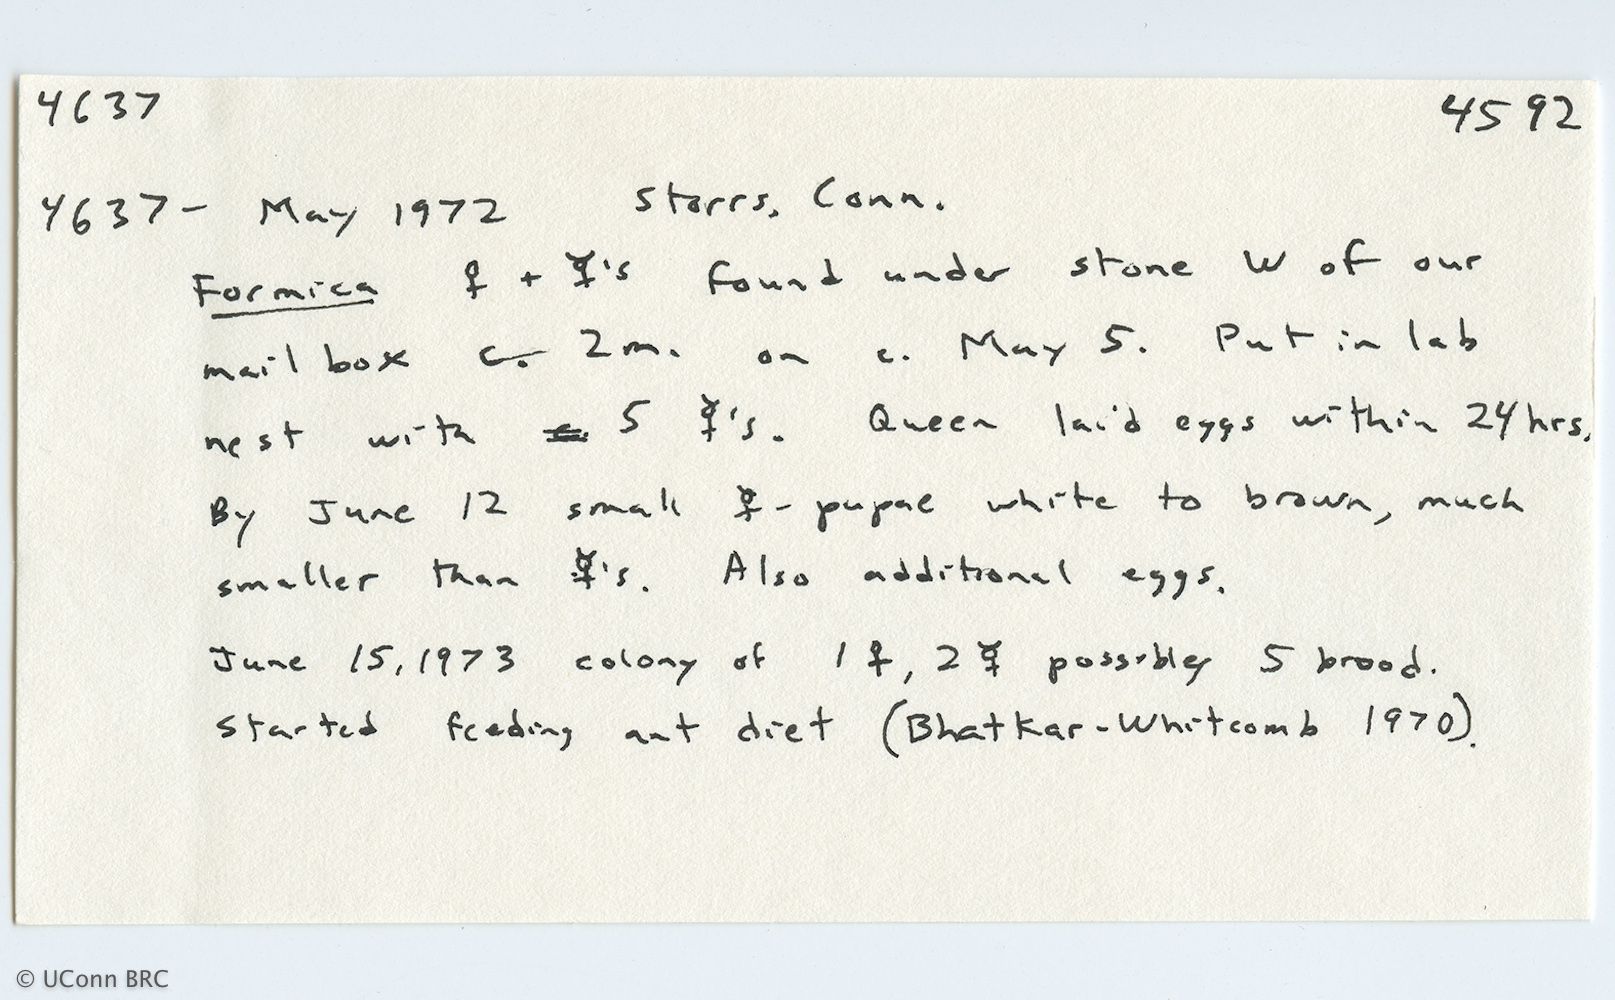 4637 4592
4637- May 1972 Storrs, Conn.
Formica ♀ + ☿'s found under stone W of our
mail box c. 2m. on c. May 5. Put in lab
nest with 5 ☿'s. Queen laid eggs within 24 hrs.
By June 12 small ☿-pupae white to brown, much
smaller than ☿'s. Also additional eggs.
June 15, 1973 colony of 1 ♀, 2 ☿ possibly 5 brood.
Started feeding ant diet (Bhatkar-Whitcomb 1970).
© UConn BRC